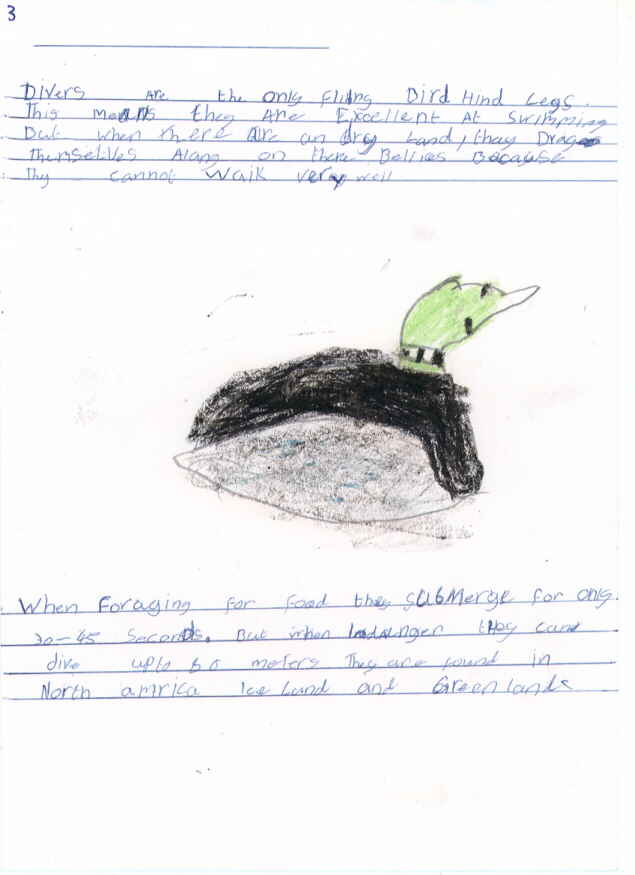 3
Divers are the only fliing Bird Hind Legs.
This means they Are Excellent At swimming
But when there are on dry Land, thay Drag
Themselves Along on there Bellies Because
Thy cannot walk very well
When Foraging for food they submerge for only
30-45 Seconds. But when Indaunger they cane
dive upto 60 meters They are found in
North amrica Ice Land and Greenlands